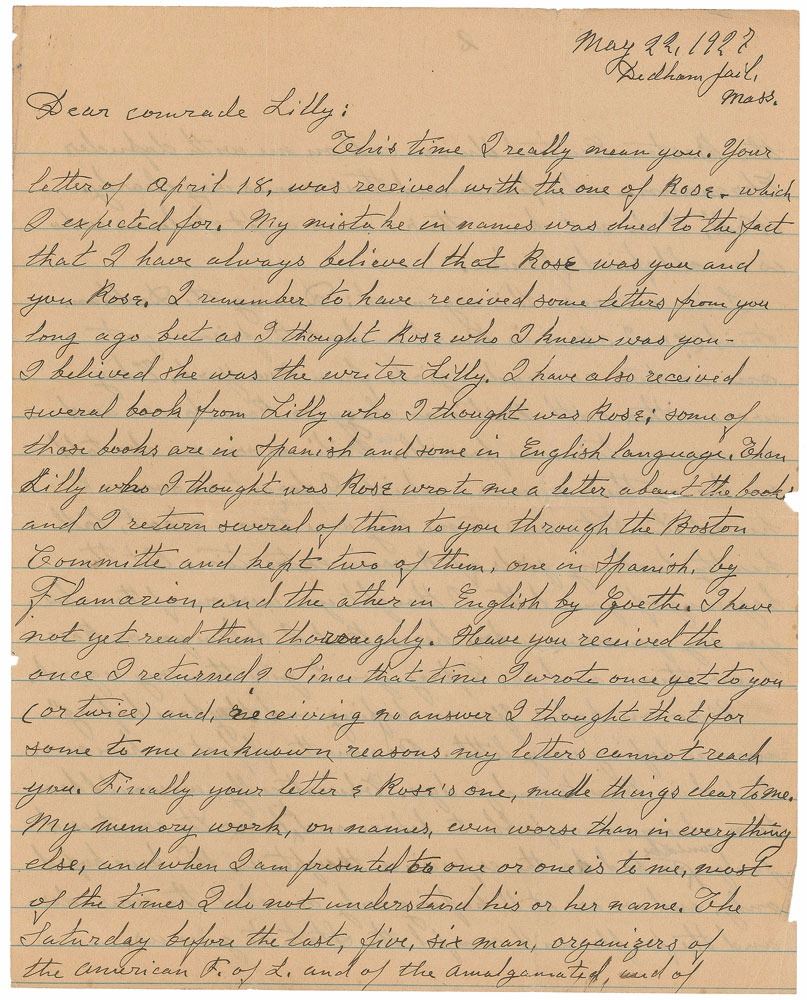 May 22, 1927
Dedham jail,
Mass.
Dear comrade Lilly:
This time I really mean you. Your
letter of April 18, was received with the one of Rose, which
I expected for. My mistake in names was dued to the fact
that I have always believed that Rose was you and
you Rose. I remember to have received some letters from you
long ago but as I thought Rose who I knew was you-
I believed she was the writer Lilly. I have also received
several book from Lilly who I thought was Rose; some of
those books are in Spanish and some in English language. Than
Lilly who I thought was Rose wrote me a letter about the books
and I return several of them to you through the Boston
Committe and kept two of them, one in Spanish, by
Flamarion, and the other in English by Goethe. I have
not yet read them thoroughly. Heave you received the
once I returned? Since that time I wrote once yet to you
(or twice) and, receiving no answer I thought that for
some to me unknown reasons my letters cannot reach
you. Finally your letter & Rose's one, made things clear to me.
My memory work, on names, even worse than in everything
else, and when I am presented to one or one is to me, most
of the times I do not understand his or her name. The
Saturday before the last, five, six man, organizers of
the American F. of L. and of the Amalgamated, and of